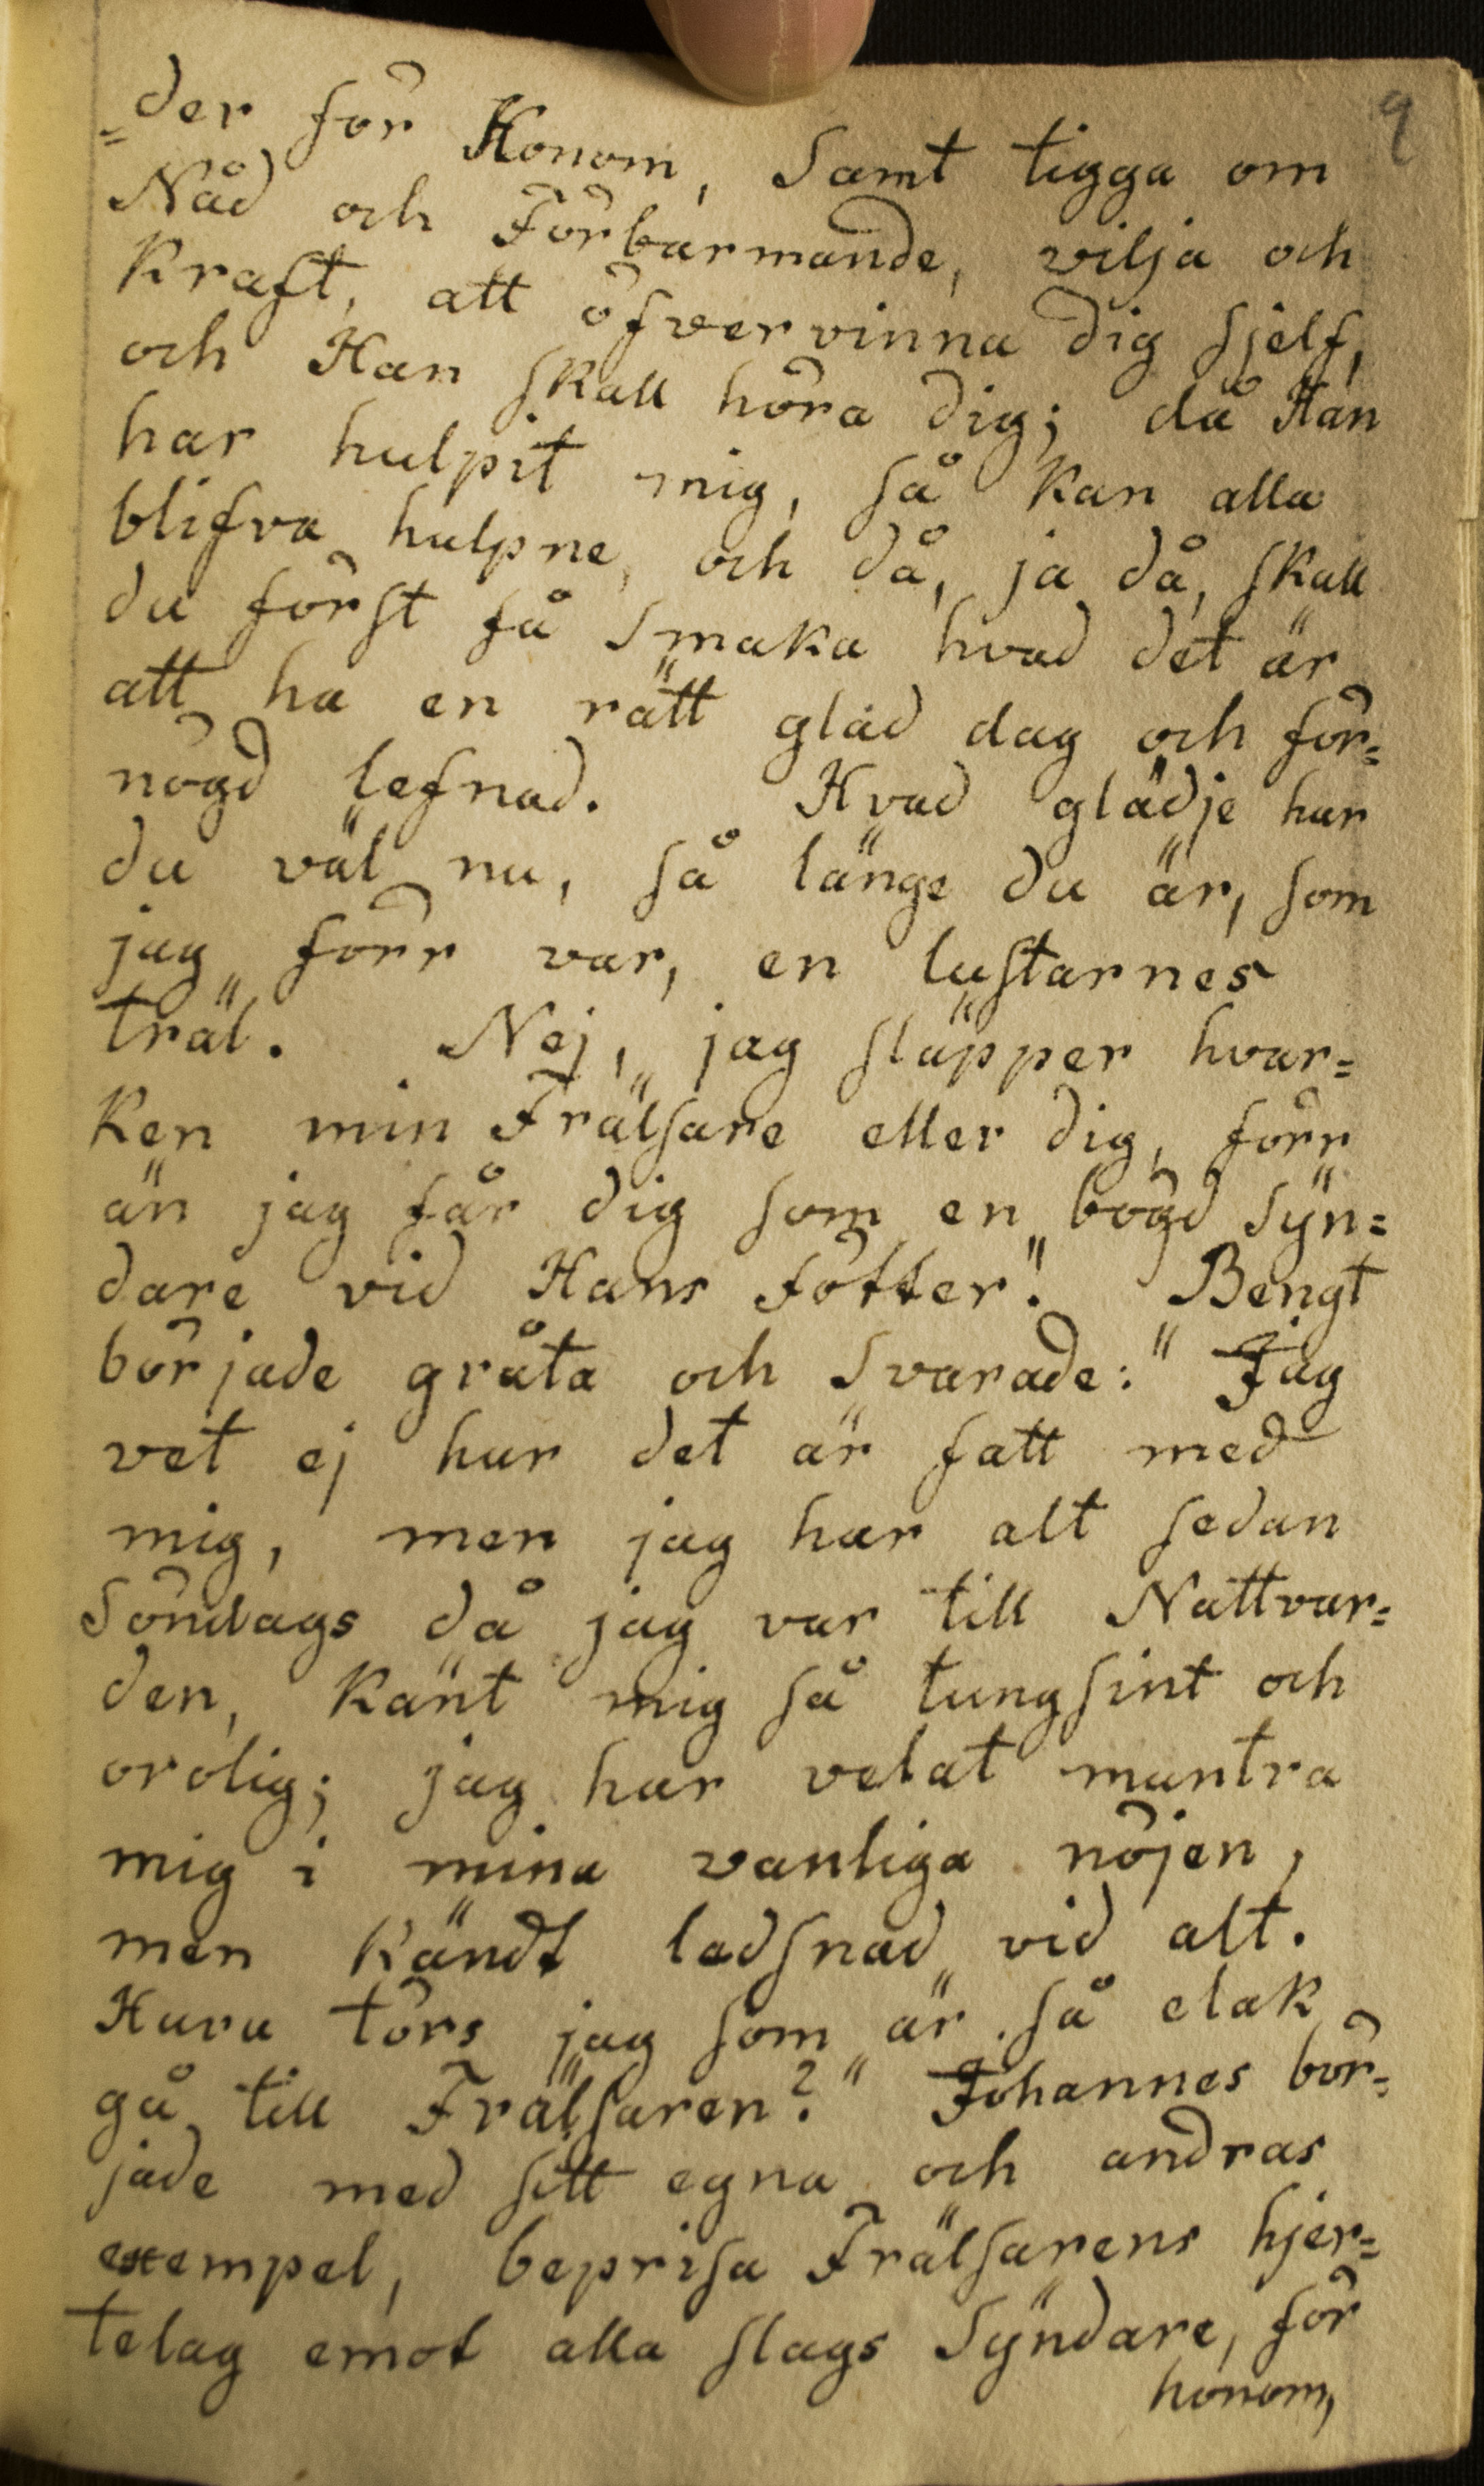 9
=der för Honom, Samt tigga om
Nåd och Förbarmande, vilja och
Kraft, att öfvervinna dig sjelf,
och Han skall höra dig; då Han
har hulpit mig, så kan alla
blifva hulpne, och då, ja då, skall
du först få smaka hvad det är
att ha en rätt glad dag och för=
nögd lefnad. Hvad glädje har
du väl nu, så länge du är, som
jag förr var, en lustarnes
träl. Nej, jag släpper hvar=
ken min Frälsare eller dig, förr
än jag får dig som en bögd Syn=
dare vid Hans fötter." Bengt
började gråta och svarade: "Jag
vet ej hur det är fatt med
mig, men jag har alt sedan
Söndags då jag var till Nattvar=
den, känt mig så tungsint och
orolig; jag har velat muntra
mig i mina vanliga nöjen,
men kändt ledsnad vid alt.
Huru törs jag som är så elak
gå till Frälsaren?" Johannes bör=
jade med sitt egna och andras
exempel, beprisa Frälsarens hjer=
telag emot alla slags Syndare, för
honom,